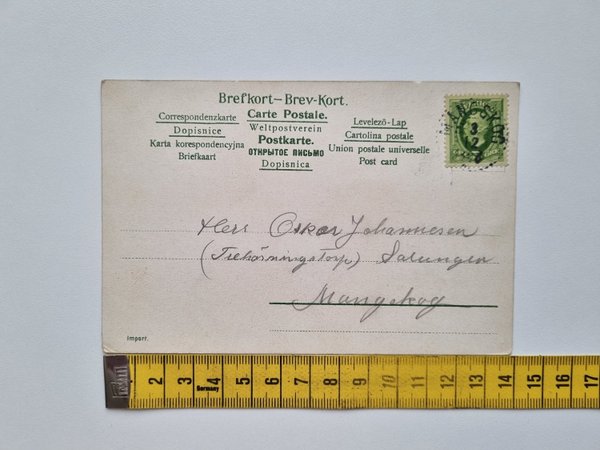 Brefkort–Brev-Kort.
Correspondenzkarte
Dopisnice
Karta korespondencyjna
Briefkaart
Carte Postale.
Weltpostverein
Postkarte.
ОТКРЫТОЕ ПИСЬМО
Dopisnica
Levelező-Lap
Cartolina postale
Union postale universelle
Post card
MANGSKOG
3
12
Herr Oskar Johannesen
(Trekörningstorp) Salungen
Mangskog
Import.
2 3 4 5 6 7 8 9 10 11 12 13 14 15 16 17
Germany